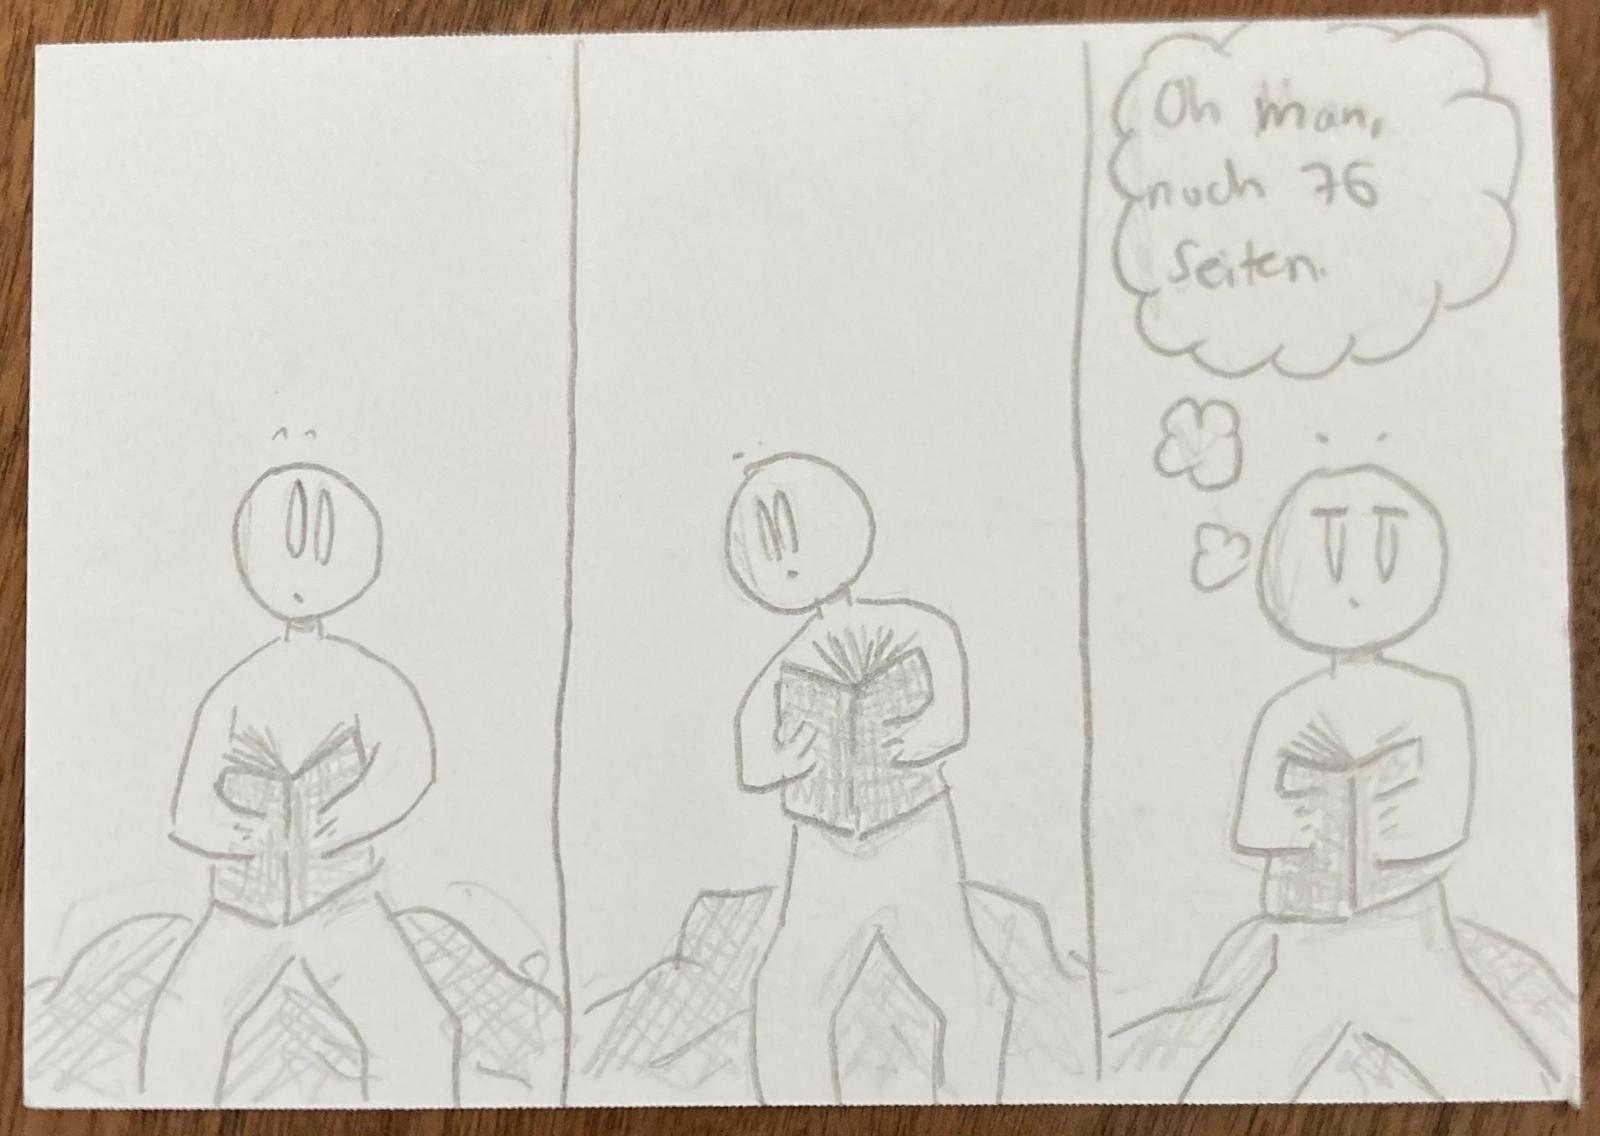 Oh man,
noch 76
Seiten.